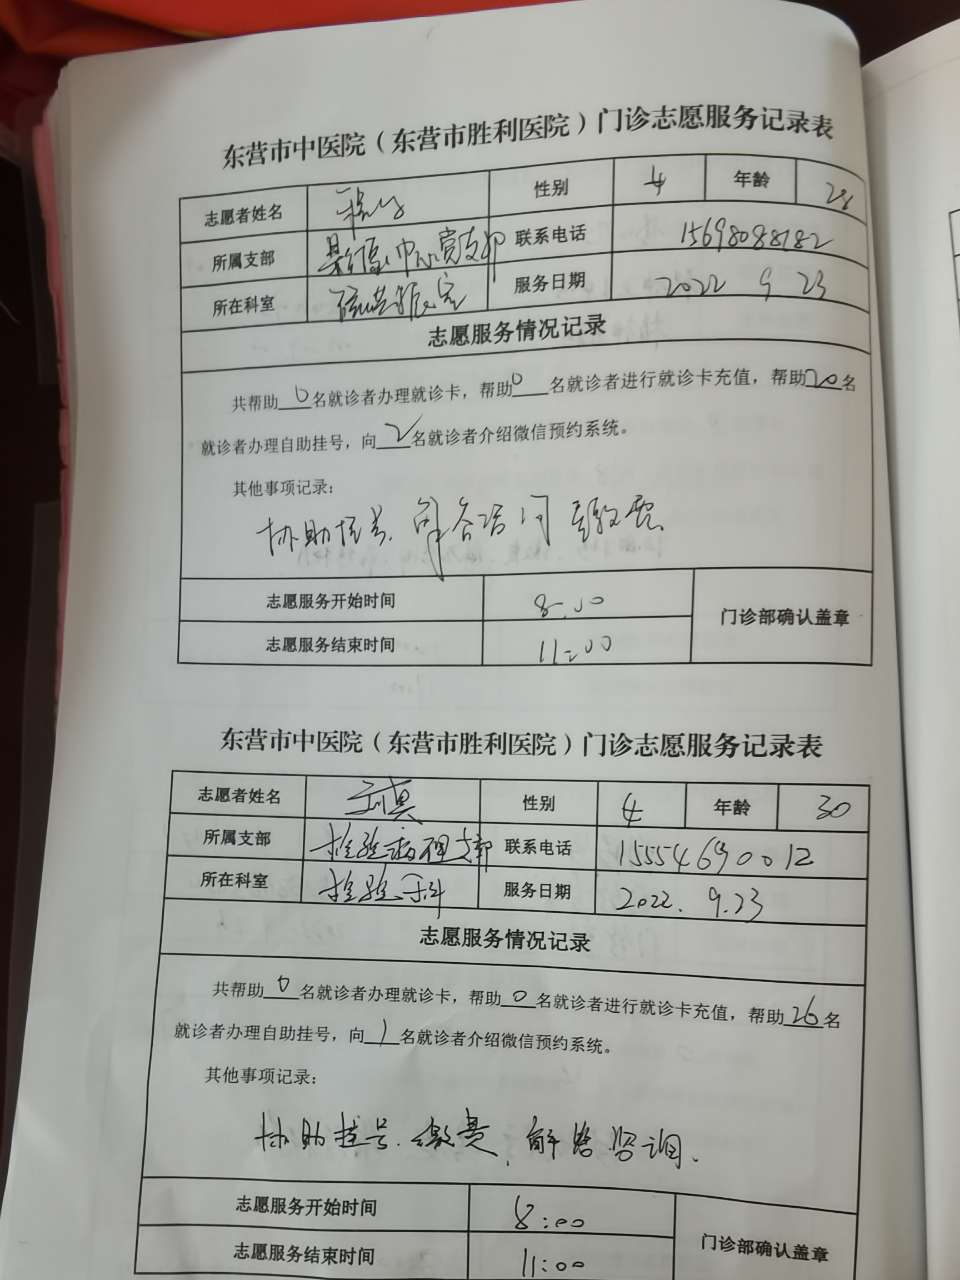 东营市中医院（东营市胜利医院）门诊志愿服务记录表
志愿者姓名 性别 女 年龄 28
所属支部 影像中心党支部 联系电话 15698088182
所在科室 服务日期 2022 9 23
志愿服务情况记录
共帮助0名就诊者办理就诊卡，帮助0名就诊者进行就诊卡充值，帮助20名
就诊者办理自助挂号，向2名就诊者介绍微信预约系统。
其他事项记录：
协助挂号.解答咨询
志愿服务开始时间 8:00 门诊部确认盖章
志愿服务结束时间 11:00
东营市中医院（东营市胜利医院）门诊志愿服务记录表
志愿者姓名 性别 女 年龄 30
所属支部 检验病理支部 联系电话 15554690012
所在科室 检验科 服务日期 2022.9.23
志愿服务情况记录
共帮助0名就诊者办理就诊卡，帮助0名就诊者进行就诊卡充值，帮助26名
就诊者办理自助挂号，向1名就诊者介绍微信预约系统。
其他事项记录：
协助挂号.缴费.解答咨询.
志愿服务开始时间 8:00 门诊部确认盖章
志愿服务结束时间 11:00